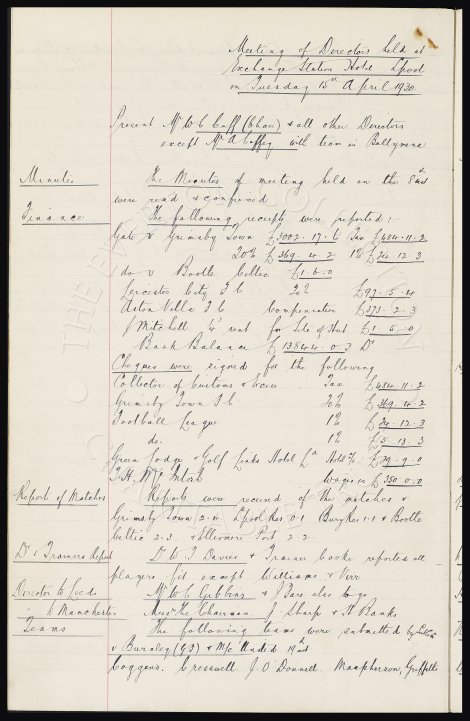 Meeting of Directors held at
Exchange Station Hotel Lpool
on Tuesday 15th April 1930
Present Mr W C Cuff (Chair) & all other Directors
except Mr A Coffey with team in Ballymena
Minutes The Minutes of meeting held on the 8th inst
were read & confirmed
Finance The following receipts were reported:-
Gate v Grimsby Town £3002.17.6 Tax £484.11.2
20% £369.4.2 1% £24.12.3
do v Bootle Celtic £1.6.0
Leicester City F C 20% £97.5.4
Aston Villa F C compensation £373.2.3
J Mitchell rent for site of Hut £1.5.0
Bank Balance £13844.0.3 Dr
Cheques were signed for the following
Collector of Customs & Excise Tax £484.11.2
Grimsby Town F C 20% £369.4.2
Football League 1% £24.12.3
do. 1% £5.13.3
Green Lodge & Golf Links Hotel Ld Hotel £79.9.0
T. H. McIntosh Wages &c £350.0.0
Report of Matches Reports were received of the matches v
Grimsby Town 2.4. Lpool Res 0.1 Bury Res 1.1 & Bootle
Celtic 2.3. & Ellesmere Port 2.2
Dr & Trainers Report Dr W. J Davies & Trainer Cooke reported all
players fit except Williams & Kerr
Director to Leeds Mr W C Gibbins & J Dare also to go
" to Manchester Messrs The Chairman J Sharp & H Banks
Teams The following teams were submitted by
v Burnley (G.P) & M/c United 19th inst
Coggins. Cresswell J. O'Donnell. Macpherson, Griffiths